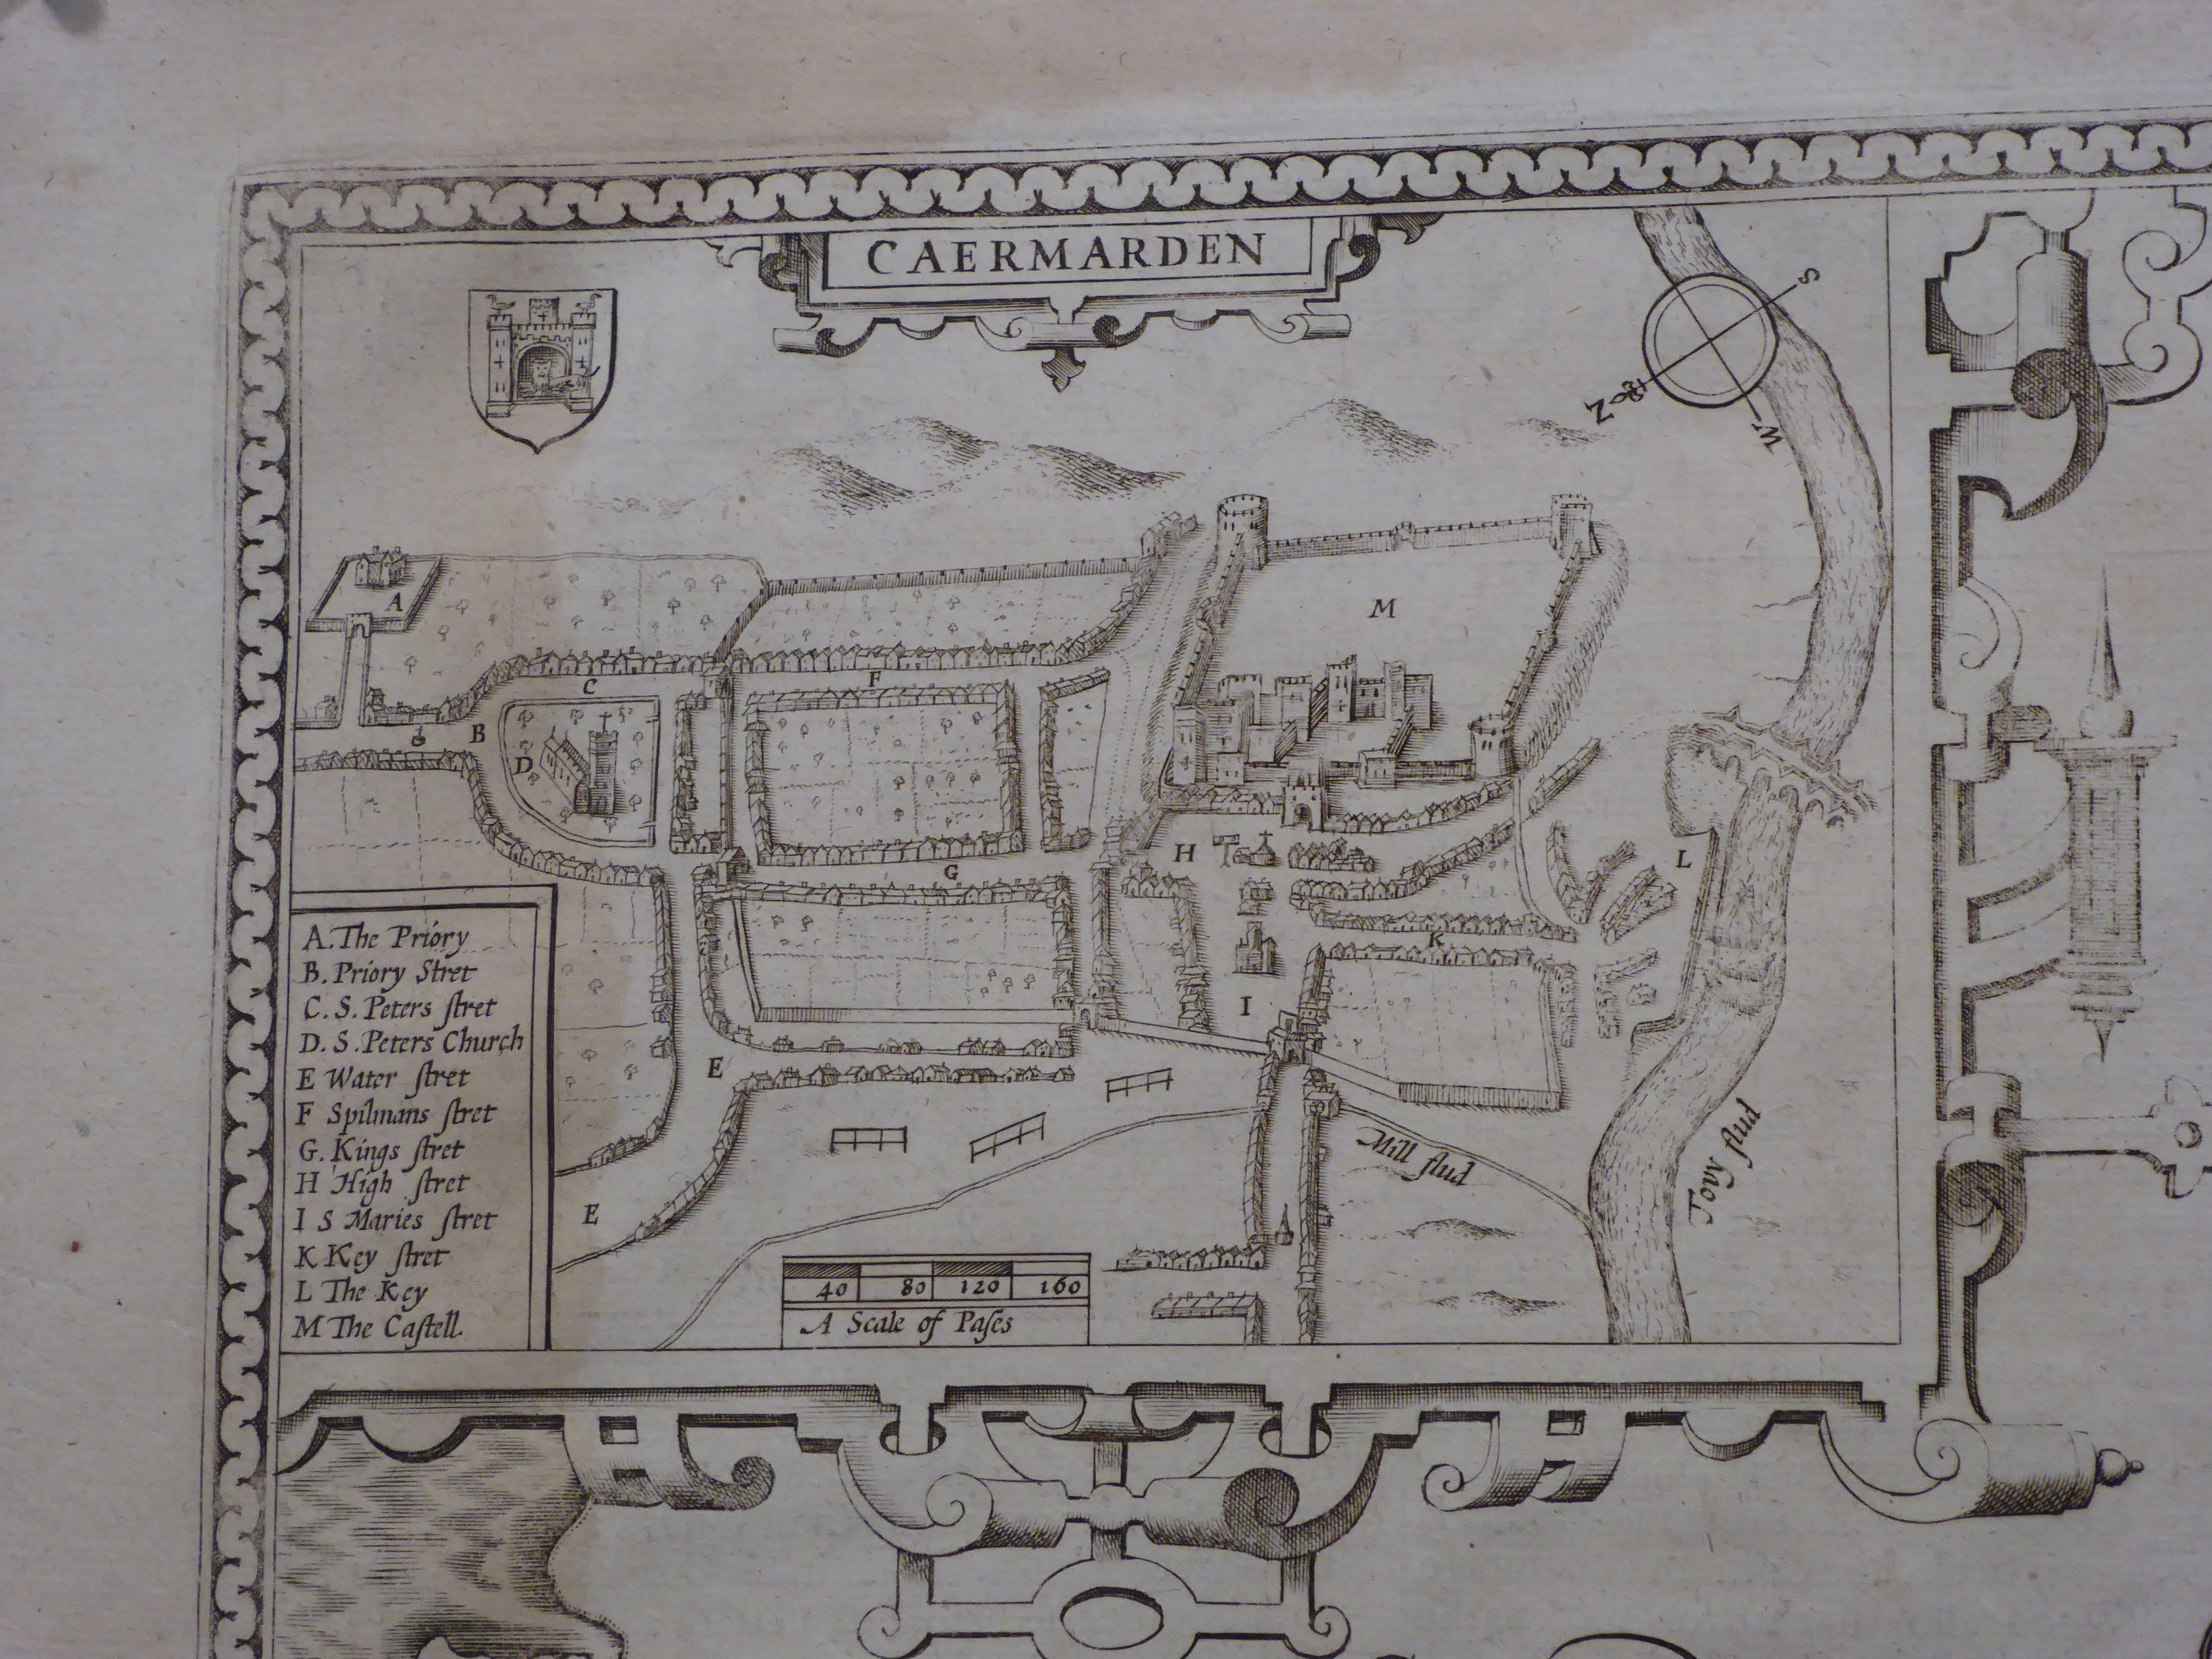 CAERMARDEN
S
N
W
A
M
C
F
B
D
H
L
G
K
I
E
E
A. The Priory
B. Priory Stret
C. S. Peters ſtret
D. S. Peters Church
E Water ſtret
F Spilmans ſtret
G. Kings ſtret
H High ſtret
I S Maries ſtret
K Key ſtret
L The Key
M The Caſtell.
Mill flud
Tovy flud
40 80 120 160
A Scale of Paſes